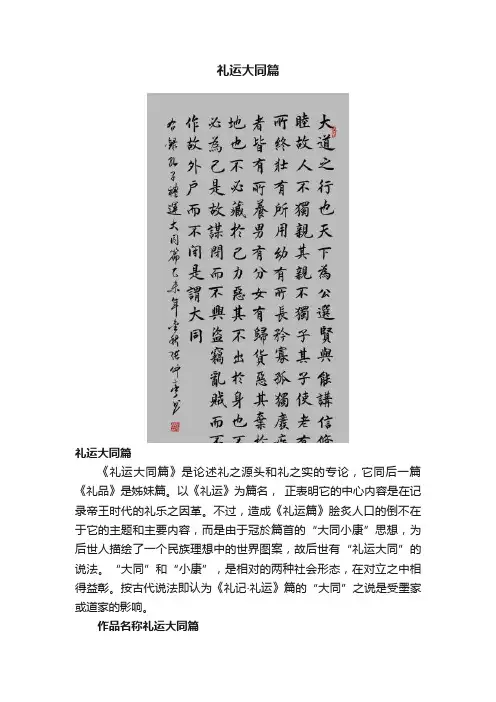 礼运大同篇
大道之行也天下為公選賢與能講信修
睦故人不獨親其親不獨子其子使老有
所終壯有所用幼有所長矜寡孤獨廢疾
者皆有所養男有分女有歸貨惡其棄於
地也不必藏於己力惡其不出於身也不
必為己是故謀閉而不興盜竊亂賊而不
作故外戶而不閉是謂大同
右錄孔子禮運大同篇
礼运大同篇
《礼运大同篇》是论述礼之源头和礼之实的专论，它同后一篇
《礼品》是姊妹篇。以《礼运》为篇名， 正表明它的中心内容是在记
录帝王时代的礼乐之因革。不过，造成《礼运篇》脍炙人口的倒不在
于它的主题和主要内容，而是由于冠於篇首的“大同小康”思想，为
后世人描绘了一个民族理想中的世界图案，故后世有“礼运大同”的
说法。“大同”和“小康”，是相对的两种社会形态，在对立之中相
得益彰。按古代说法即认为《礼记·礼运》篇的“大同”之说是受墨家
或道家的影响。
作品名称礼运大同篇